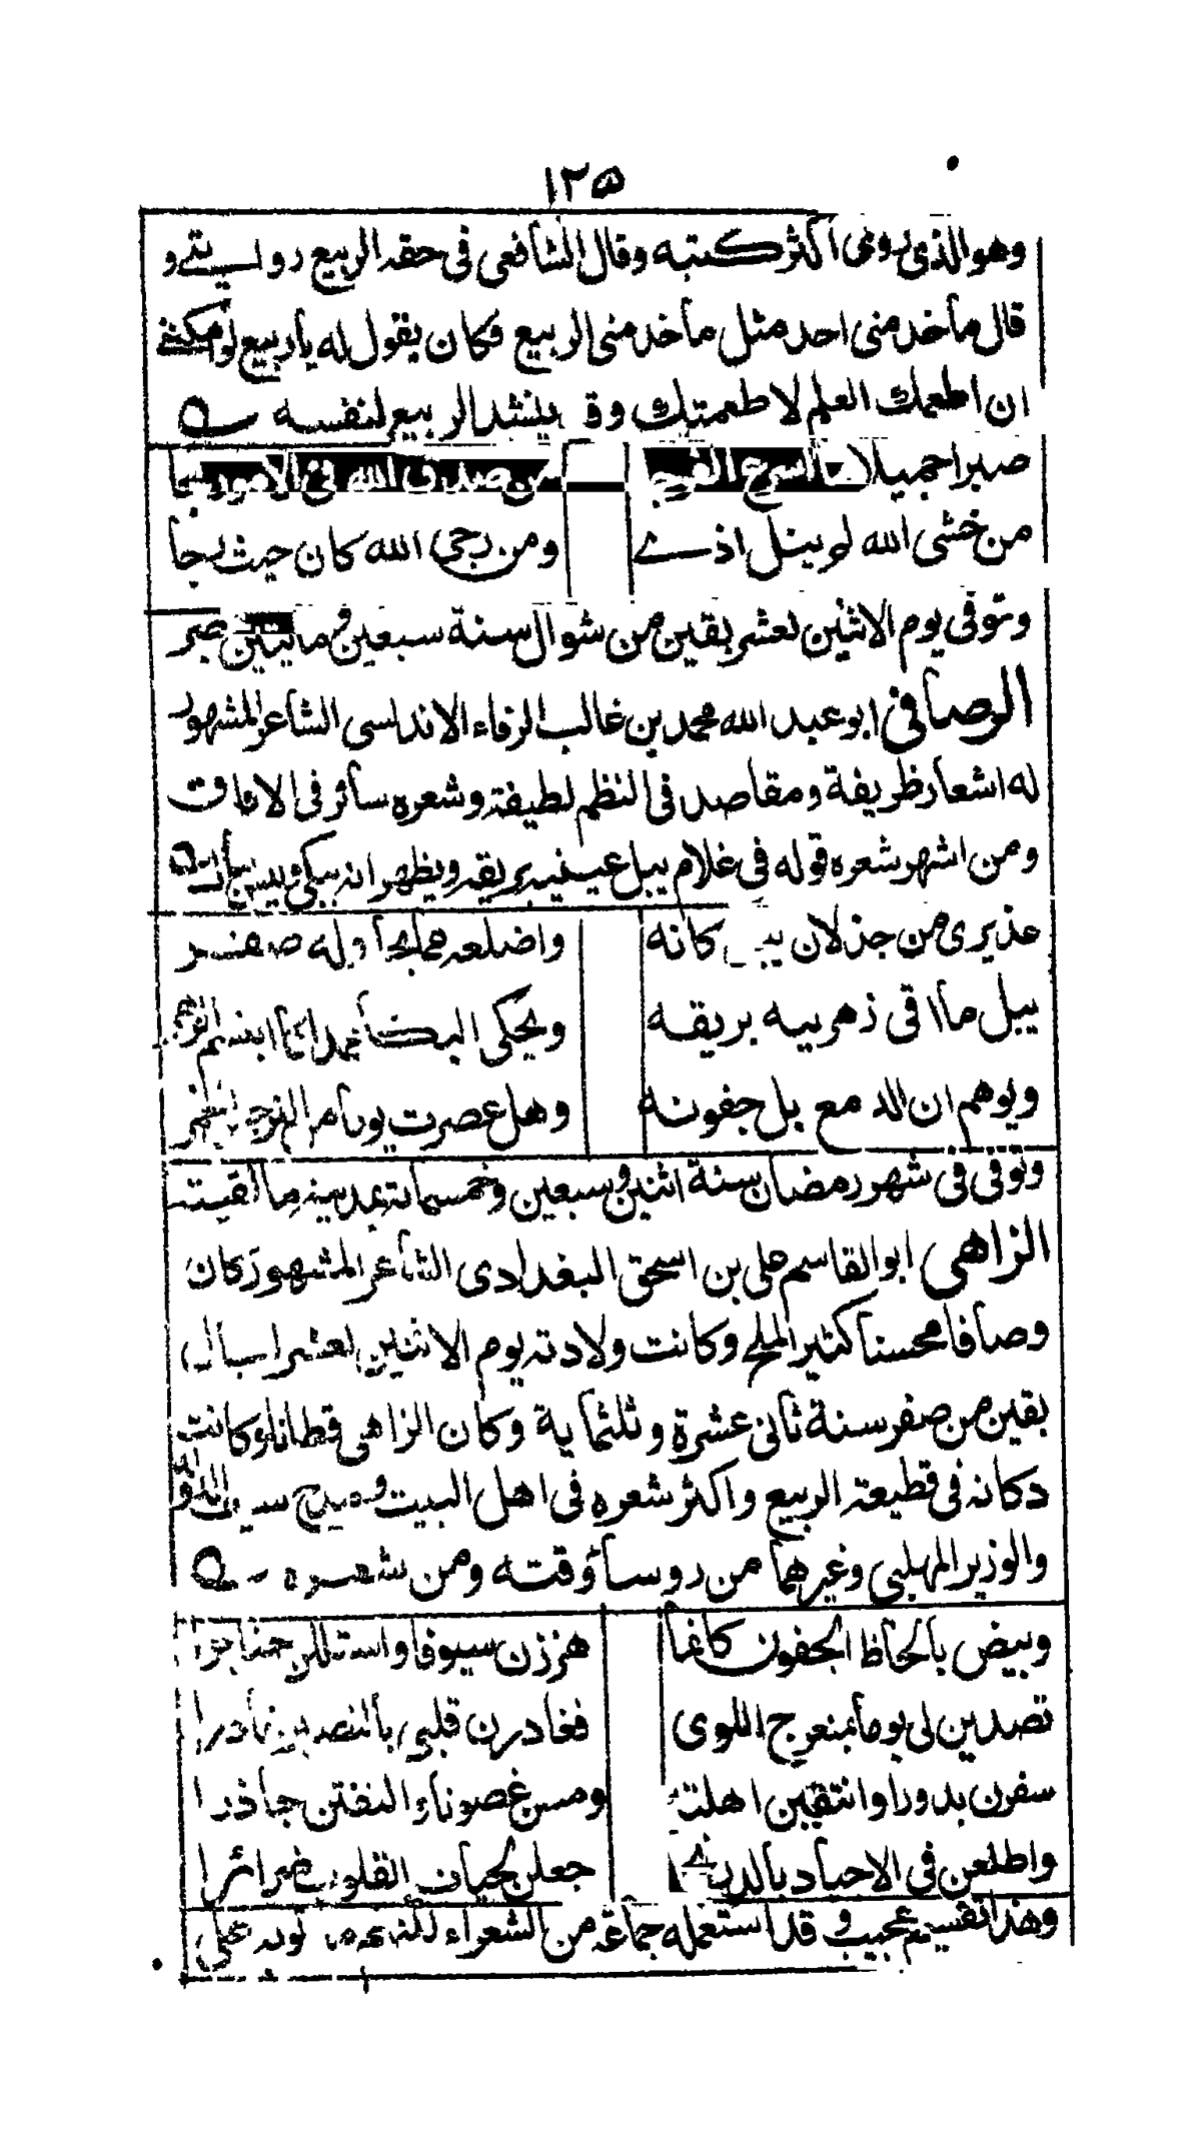 ١٢٥
وهو الذى روى اكثر كتبه وقال الشافعى فى حقه الربيع روايتے و
قال ماخد منى احد مثل ماخد منى الربيع وكان يقول له ياربيع لو امكننے
ان اطعمك العلم لاطعمتك وقد ينشد الربيع لنفسه
صبرا جميلا ما اسرع الفرجا من صدق الله فى الامور نجا
من خشى الله لم ينل اذے ومن رجى الله كان حيث رجا
وتوفى يوم الاثنين لعشر بقين من شوال سنة سبعين وماتيين بمصر
الرصافى ابو عبد الله محمد بن غالب الرفاء الاندلسى الشاعر المشهور
له اشعار ظريفة ومقاصد فى النظم لطيفة وشعره سائر فى الافاق
ومن اشهر شعره قوله فى غلام يبل عينيه بريقه ويظهر انه يبكى وليس
عذيرى من جذلان كانه واضلعه مما صفر
يبل ماقى زهرييه بريقه ويحكى البكا عمدا كما ابتسم الزهر
ويوهم ان الدمع بل جفونه وهل عصرت يوما من النرجس الخمر
وتوفى فى شهر رمضان سنة اثنين وسبعين وخمسمائة بمدينة مالقيته
الزاهى ابو القاسم على بن اسحق البغدادى الشاعر المشهور كان
وصافا محسنا كثير الملح وكانت ولادته يوم الاثنين لعشر ليال
بقين من صفر سنة ثانى عشرة وثلثماية وكان الزاهى قطانا وكانت
دكانه فى قطيعة الربيع واكثر شعره فى اهل البيت ومدح سيف الدولة
والوزير المهلبى وغيرهما من روساؤقته ومن شعره
وبيض بالحاظ الجفون كانما هززن سيوفا واستللن خناجرا
تصدين لى يوما بمنعرج اللوى فغادرن قلبى بالتصبر غادرا
سفرن بدورا وانتقبن اهلة ومسن غصونا والتفتن جاذرا
واطلعن فى الاجياد بالدر جعلن لحبات القلوب ضرائرا
وهذا تقسيم عجيب وقد استعمله جماعة من الشعراء على